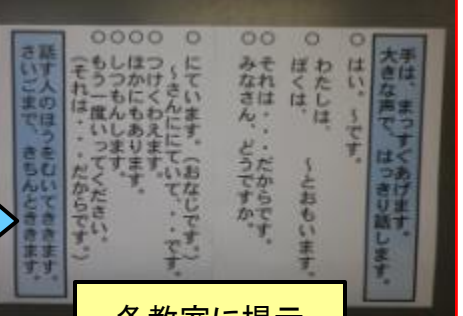 手は、まっすぐあげます。
大きな声で、はっきり話します。
○はい。～です。
○わたしは、
ぼくは、　～とおもいます。
○それは・・・だからです。
○みなさん、どうですか。
○にています。（おなじです。）
～さんににていて、・・です。
○つけくわえます。
○ほかにもあります。
○しつもんします。
○もう一度いってください。
（それは・・・だからです。）
話す人のほうをむいてききます。
さいごまで、きちんとききます。
各教室に掲示